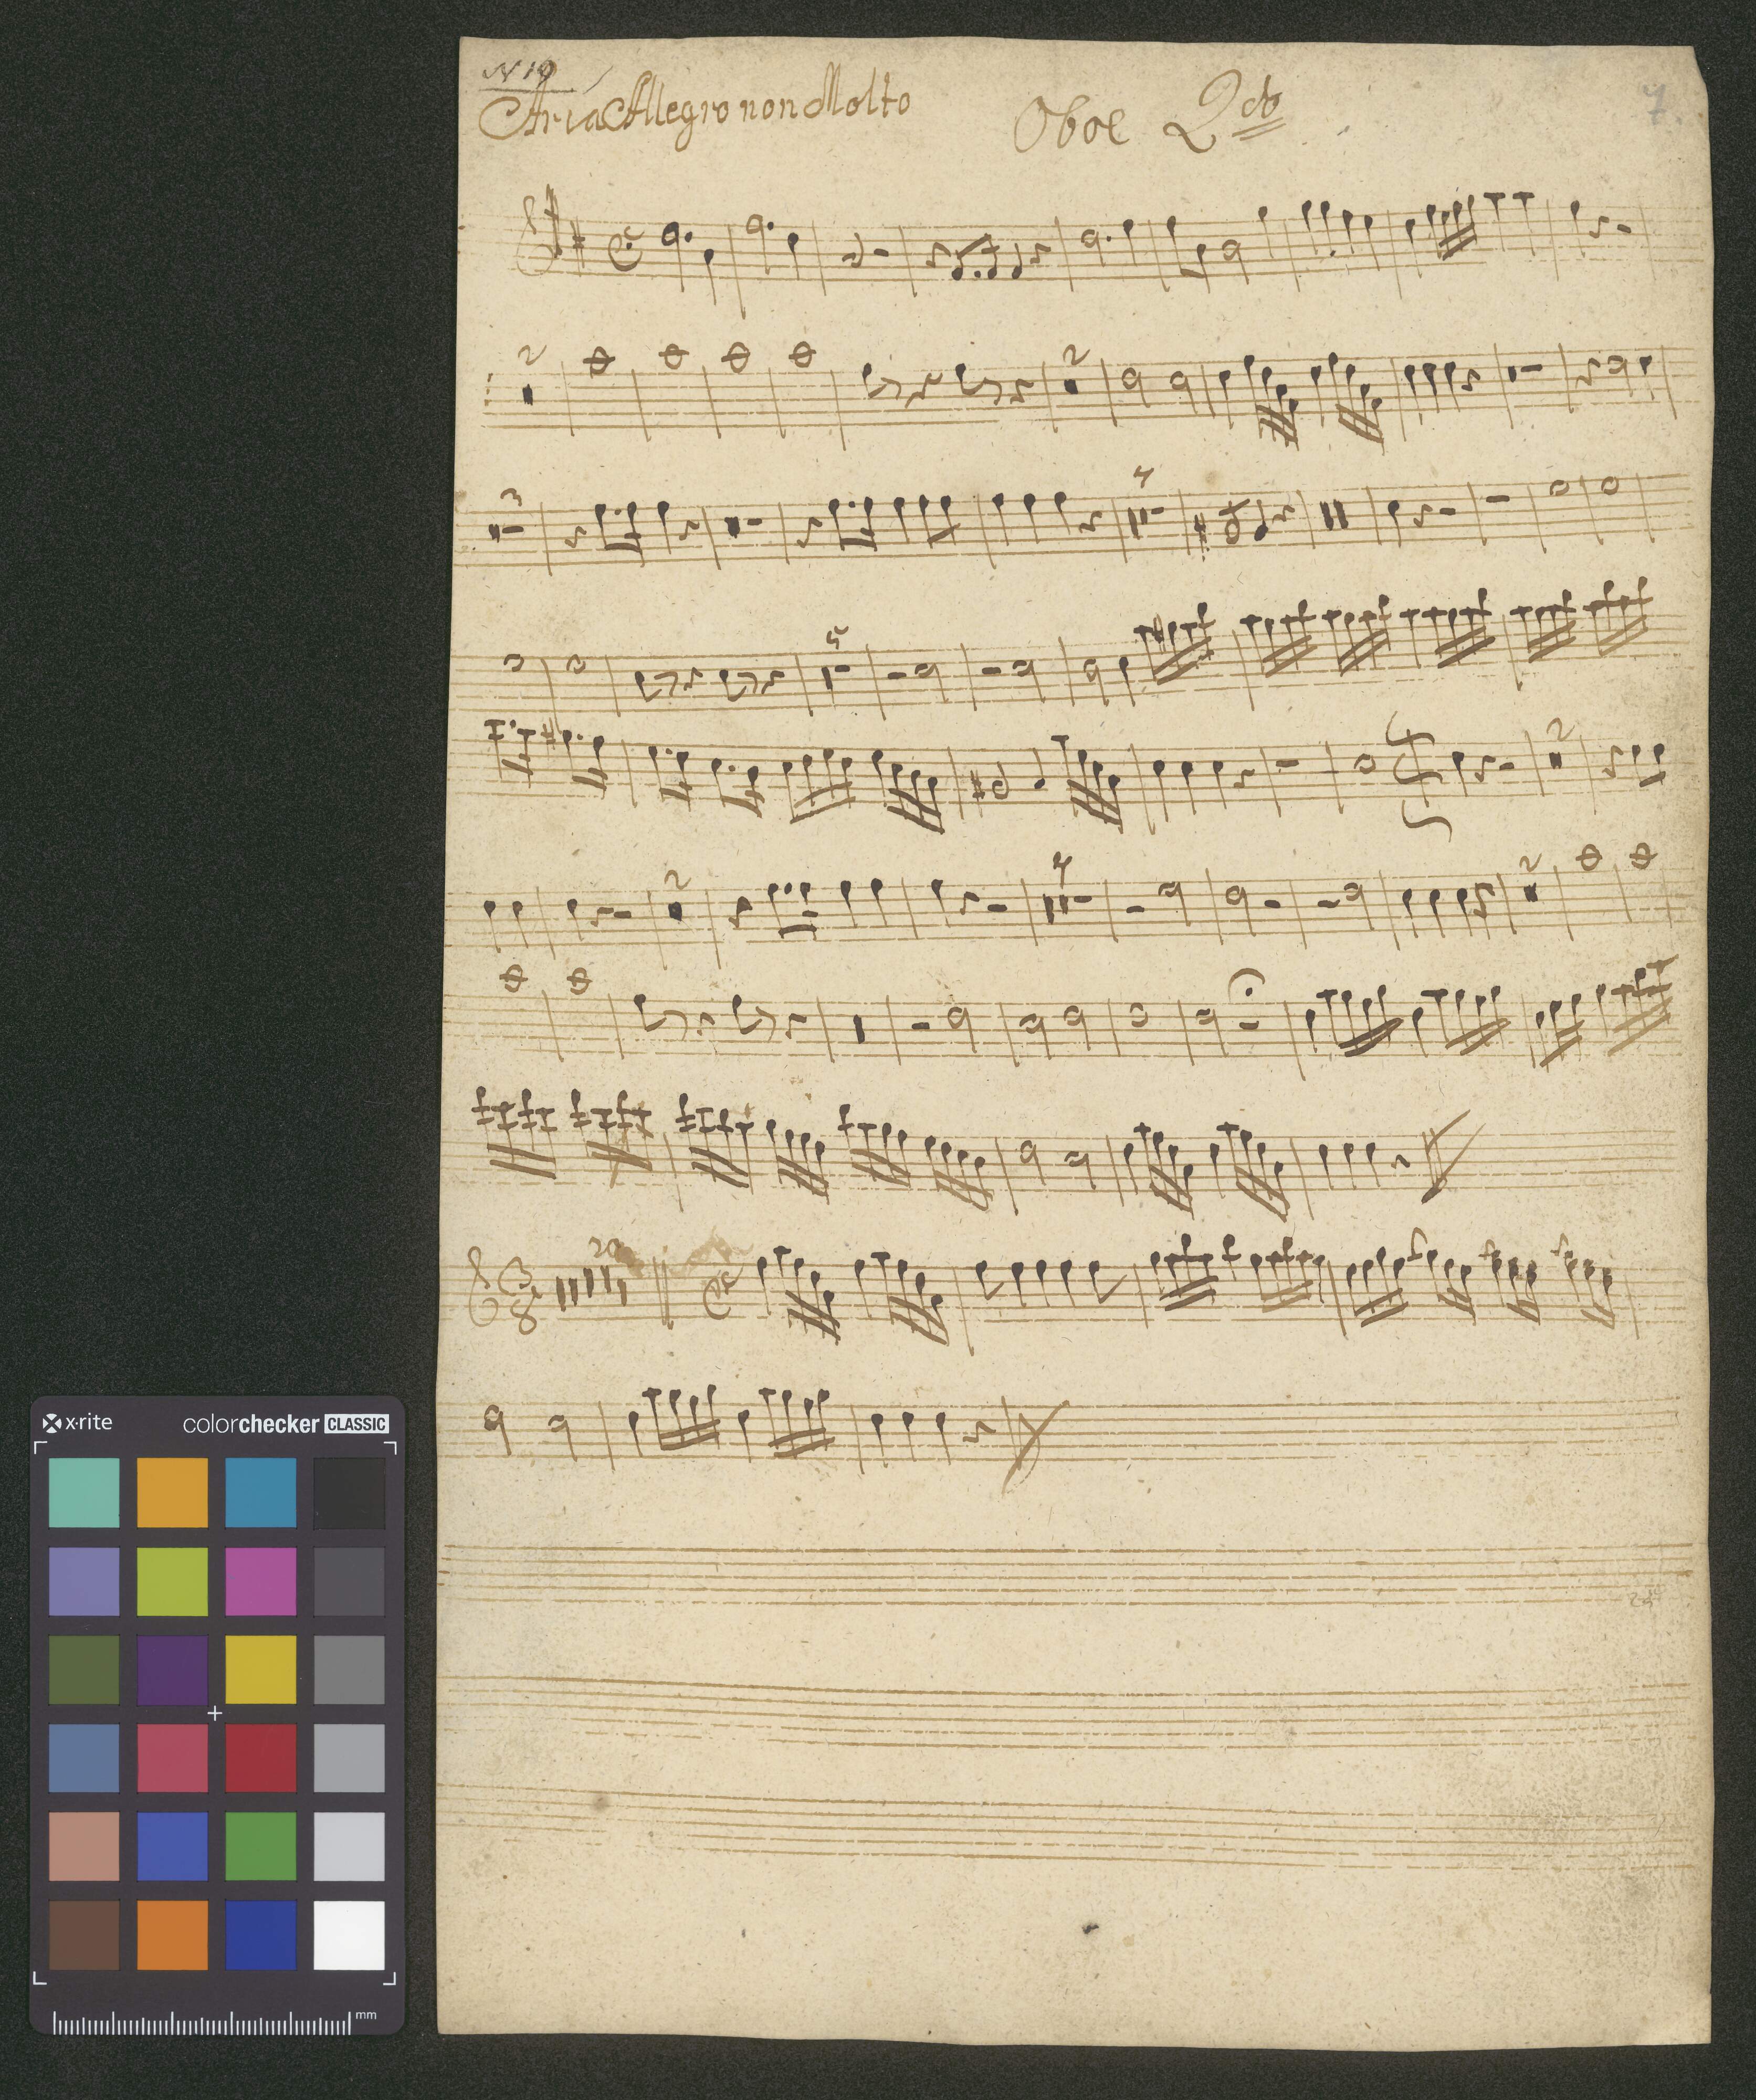 N 19
Aria Allegro non Molto
Oboe 2do
7.
2
2
3
4
5
2
2
4
2
3
8
20
x-rite
colorchecker CLASSIC
mm